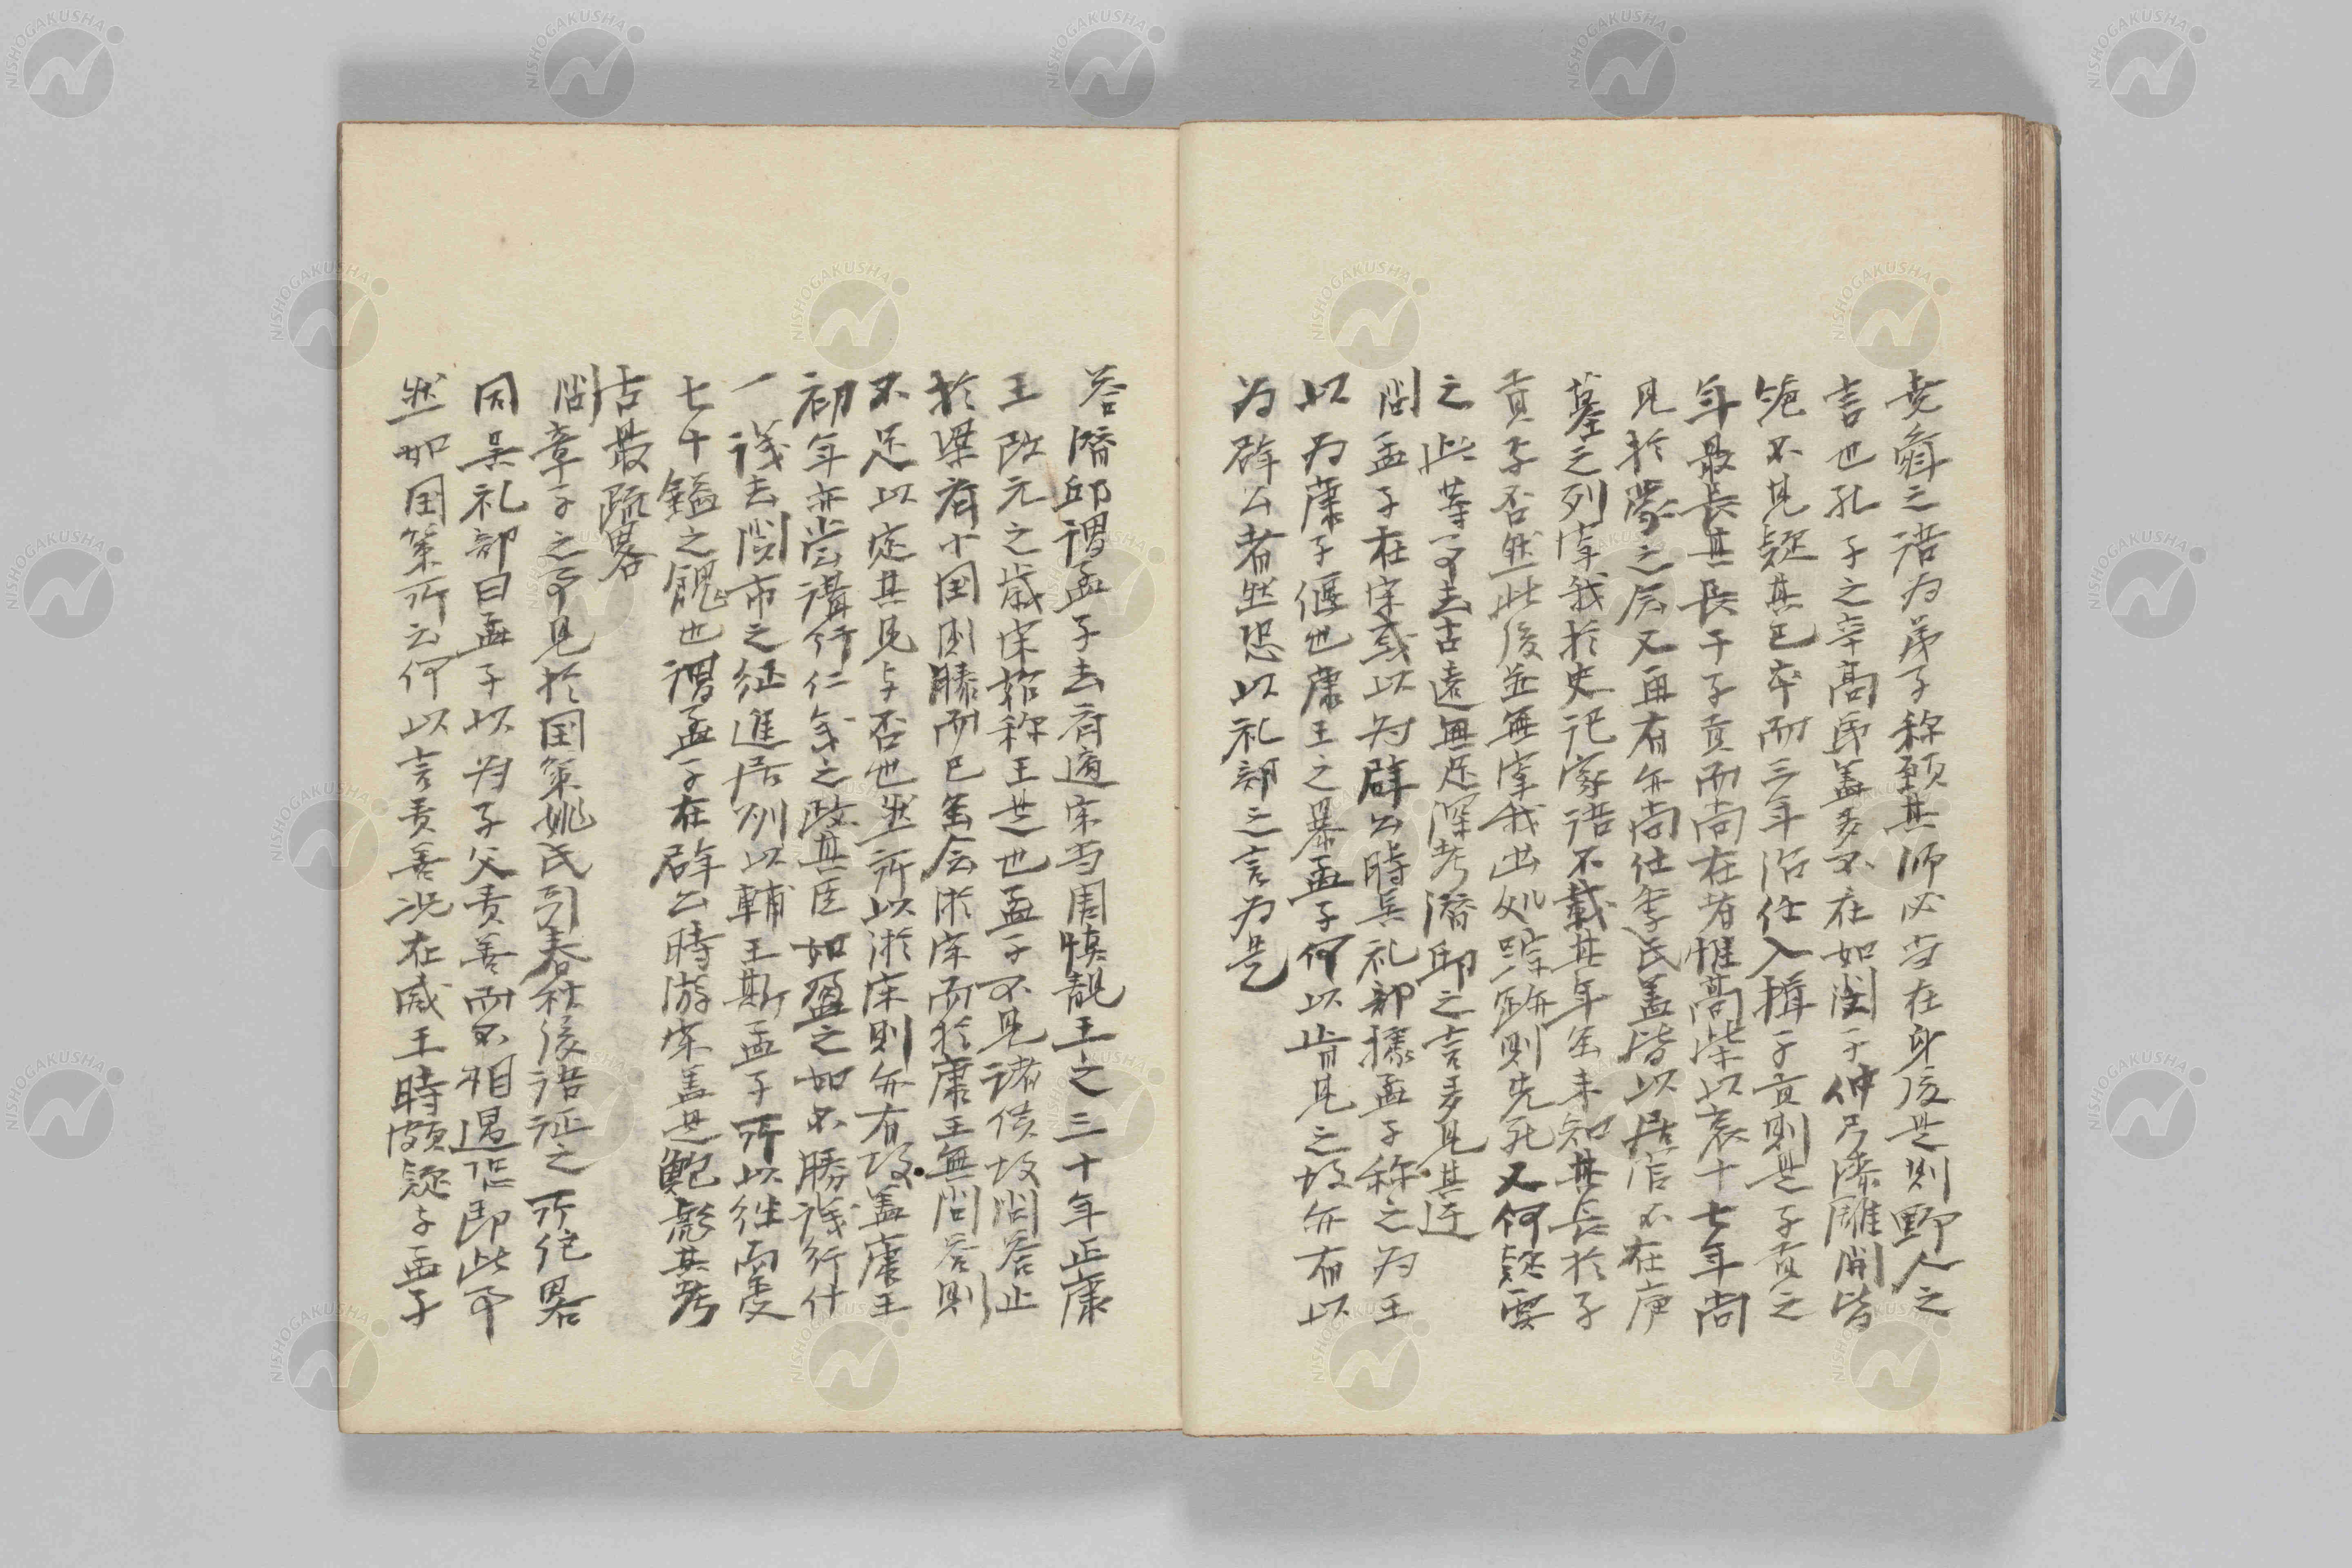 堯舜之語为弟子称頌其师必当在身後是則野人之
言也孔子之卒高弟蓋多不在如閔子仲弓漆雕開皆
絶不見疑其已卒而三年治任入揖子貢則是子貢之
年最長其長于子貢而尚在者惟高柴以哀十七年尚
見於蒙之会又冉有亦尚仕季氏盖皆以居官不在庐
墓之列宰我於史記家语不載其年虽未知其長於子
貢子否然此後並無宰我出处踪跡則先死又何疑要
之此等事去古遠無庸深考潛邱之言多見其迂
問孟子在宋或以为辟公時吳礼部據孟子称之为王
以为康子偃也康王之暴孟子何以肯見之故亦有以
为辟公者然恐以礼部之言为是
答潛邱謂孟子去齊適宋当周慎靚王之三十年正康
王改元之歲宋始称王是也孟子不見诸侯故問答止
於梁齊小国則滕而已虽会游宋而於康王無問答則
不足以定其見与否也然所以游宋則亦有故盖康王
初年亦尝講行仁義之政其臣如盈之如不勝議行什
一議去関市之征進居州以輔王斯孟子所以往而受
七十鎰之餽也謂孟子在辟公時游宋盖是鮑彪其考
古最疏畧
問章子之事見於国策姚氏引春秋後语証之所傳畧
同吴礼部曰孟子以为子父责善而不相遇恐即此事
然如国策所云何以言责善况在威王時頗疑与孟子